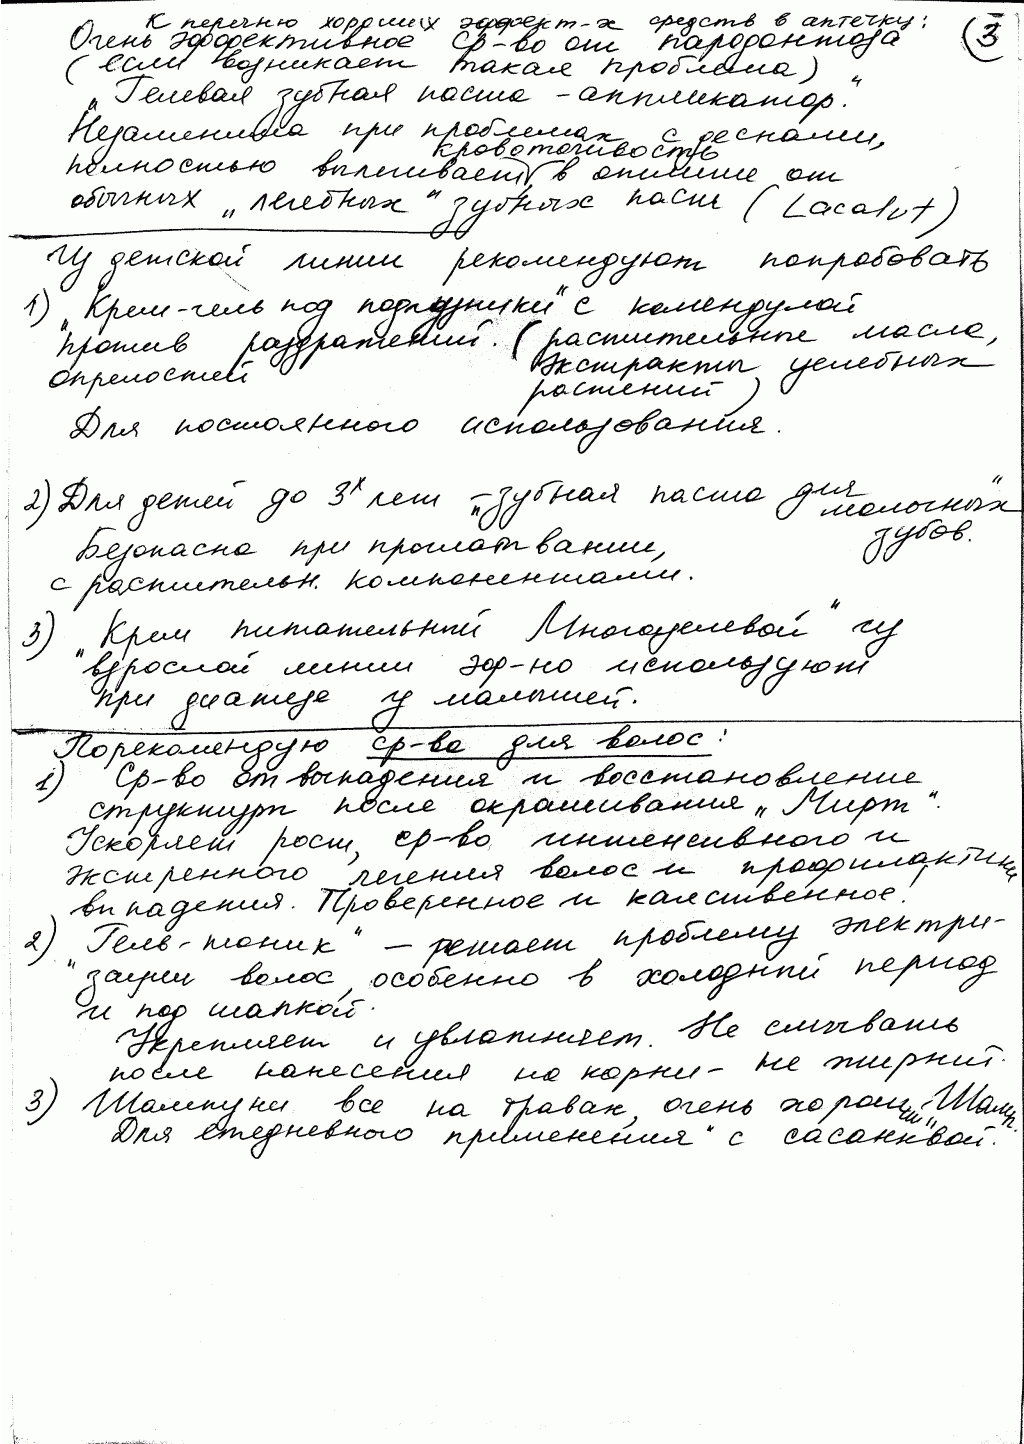 К перечню хороших эффект-х средств в аптечку:
③
Очень эффективное ср-во от пародонтоза
(если возникает такая проблема)
„Гелевая зубная паста - аппликатор".
Незаменима при проблемах с деснами,
кровоточивость
полностью вылечивает, в отличие от
обычных „лечебных" зубных паст (Lacalut)
Из детской линии рекомендуют попробовать
1) „Крем-гель под подгузники" с календулой
против раздражений. (растительные масла,
опрелостей экстракты целебных
растений)
Для постоянного использования.
2) Для детей до 3х лет - „зубная паста для
молочных"
зубов.
Безопасна при проглатывании,
с растительн. компонентами.
3) „Крем питательный Многоцелевой" из
взрослой линии эф-но используют
при диатезе у малышей.
Порекомендую ср-ва для волос:
1) Ср-во от выпадения и восстановление
структуры после окрашивания „Мирт".
Ускоряет рост, ср-во интенсивного и
экстренного лечения волос и профилактики
выпадения. Проверенное и качественное!
2) „Гель-тоник" – решает проблему электри-
зации волос, особенно в холодный период
и под шапкой.
Укрепляет и увлажняет. Не смывать
после нанесения на корни - не жирнит.
3) Шампуни все на травах, очень хорош „Шамп.
Для ежедневного применения" с сасанквой.